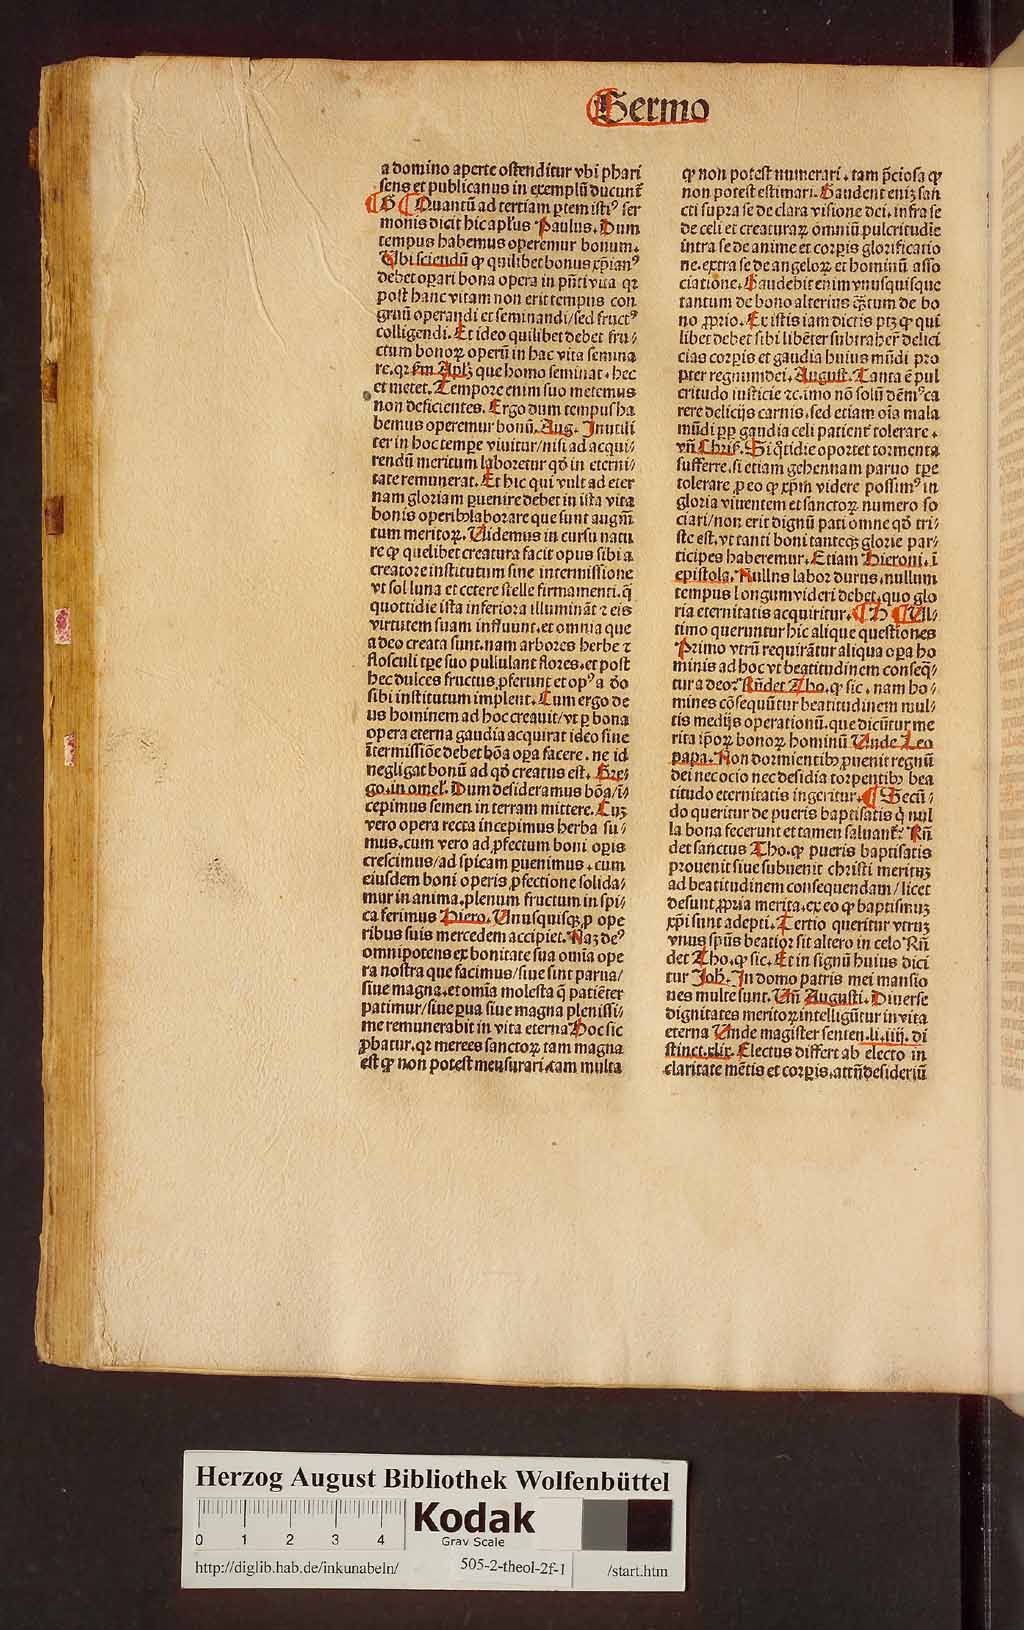 Sermo
a domino aperte ostenditur vbi phari
seus et publicanus in exemplū ducunt̄
G Quantū ad tertiam ꝑtem istiꝰ ser
monis dicit hic apl'us Paulus. Dum
tempus habemus operemur bonum.
Vbi sciendū ꝙ quilibet bonus xp̄ianꝰ
debet oꝑari bona opera in pn̄ti vita qꝛ
post hanc vitam non erit tempus con
gruū operandi et seminandi/sed fructꝰ
colligendi. Et ideo quilibet debet fru/
ctum bonoꝝ operū in hac vita semina
re. qꝛ ẜm Apl'ꝫ que homo seminat. hec
et metet. Tempore enim suo metemus
non deficientes. Ergo dum tempus ha
bemus operemur bonū. Aug. Inutili
ter in hoc tempe viuitur/nisi ad acqui/
rendū meritum laboretur qd̄ in eterni/
tate remunerat. Et hic qui vult ad eter
nam gloriam ꝑuenire debet in ista vita
bonis operibꝫ laborare que sunt augm̄
tum meritoꝝ. Videmus in cursu natu
re ꝙ quelibet creatura facit opus sibi a
creatore institutum sine intermissione
vt sol luna et cetere stelle firmamenti. q̄
quottidie ista inferiora illumināt ⁊ eis
virtutem suam influunt. et omnia que
a deo creata sunt. nam arbores herbe ⁊
flosculi tꝑe suo pullulant flores. et post
hec dulces fructus ꝓferunt et opꝰ a dō
sibi institutum implent. Cum ergo de
us hominem ad hoc creauit/vt ꝑ bona
opera eterna gaudia acquirat ideo sine
ītermissiōe debet bōa oꝑa facere. ne id
negligat bonū ad qd̄ creatus est. Gre/
go. in omel'. Dum desideramus bōa/i/
cepimus semen in terram mittere. Cuꝫ
vero opera recta incepimus herba su/
mus. cum vero ad ꝓfectum boni oꝑis
crescimus/ad spicam ꝑuenimus. cum
eiusdem boni operis ꝓfectione solida/
mur in anima. plenum fructum in spi/
ca ferimus Hiero. Vnusquisqꝫ ꝓ ope
ribus suis mercedem accipiet. Naꝫ deꝰ
omnipotens ex bonitate sua omia ope
ra nostra que facimus/siue sint parua/
siue magna. et omīa molesta q̄ patiēter
patimur/siue ꝑua siue magna plenissi/
me remunerabit in vita eterna Hoc sic
ꝓbatur. qꝛ merces sanctoꝝ tam magna
est ꝙ non potest mensurari. tam multa
ꝙ non potest numerari. tam p̄ciosa ꝙ
non potest estimari. Gaudent eniꝫ san
cti supra se de clara visione dei. infra se
de celi et creaturaꝝ omniū pulcritudie
intra se de anime et corꝑis glorificatio
ne. extra se de angeloꝝ et hominū asso
ciatione. Gaudebit enim vnusquisque
tantum de bono alterius qꝫtum de bo
no ꝓprio. Ex istis iam dictis ptꝫ ꝙ qui
libet debet sibi libēter subtraher̄ delici
cias corꝑis et gaudia huius mūdi pro
pter regnum dei. August. Tanta ē pul
critudo iusticie ⁊c. imo nō solū dēmꝰ ca
rere delicijs carnis. sed etiam oīa mala
mūdi ꝓp gaudia celi patient̄ tolerare.
vn̄ Chris. Si q̄tidie oportet tormenta
sufferre. si etiam gehennam paruo tꝑe
tolerare ꝓ eo ꝙ xp̄m videre possimꝰ in
gloria viuentem et sanctoꝝ numero so
ciari/non erit dignū pati omne qd̄ tri/
ste est. vt tanti boni tanteqꝫ glorie par/
ticipes haberemur. Etiam Hieroni. ī
epistola. Nullus labor durus. nullum
tempus longum videri debet. quo glo
ria eternitatis acquiritur. H Vl/
timo queruntur hic alique questiones
Primo vtrū requirātur aliqua oꝑa ho
minis ad hoc vt beatitudinem conseq̄/
tur a deo? Rn̄det Tho. ꝙ sic. nam ho/
mines cōsequūtur beatitudinem mul/
tis medijs operationū. que dicūtur me
rita ip̄oꝝ bonoꝝ hominū Vnde Leo
papa. Non dormientibꝫ ꝓuenit regnū
dei nec ocio nec desidia torpentibꝫ bea
titudo eternitatis ingeritur. Secū/
do queritur de pueris baptisatis q̄ nul
la bona fecerunt et tamen saluant̄? Rn̄
det sanctus Tho. ꝙ pueris baptisatis
prouenit siue subuenit christi merituꝫ
ad beatitudinem consequendam/licet
desunt ꝓpria merita. ex eo ꝙ baptismuꝫ
xp̄i sunt adepti. Tertio queritur vtruꝫ
vnus sp̄us beatior sit altero in celo Rn̄
det Tho. ꝙ sic. Et in signū huius dici
tur Joh. In domo patris mei mansio
nes multe sunt. Vn̄ Augusti. Diuerse
dignitates meritoꝝ intelligūtur in vita
eterna Vnde magister senten. li. iiij. di
stinct. xlix. Electus differt ab electo in
claritate mētis et corꝑis. attn̄ desideriū
Herzog August Bibliothek Wolfenbüttel
0 1 2 3 4
Kodak
Gray Scale
http://diglib.hab.de/inkunabeln/ 505-2-theol-2f-1 /start.htm